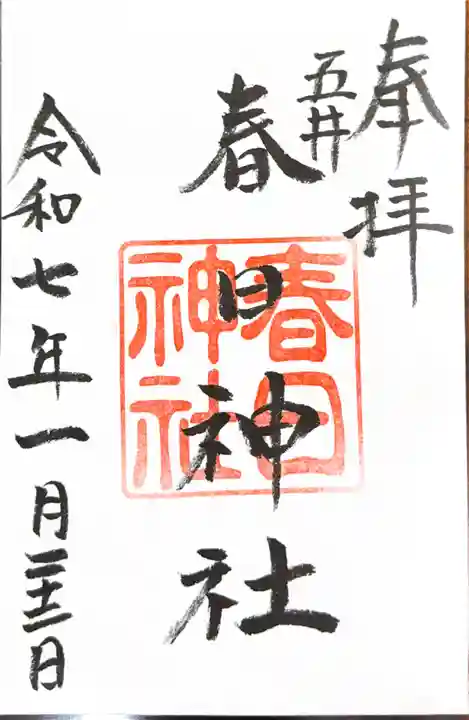 奉拝
五井
春日神社
春日
神社
令和七年一月二十三日